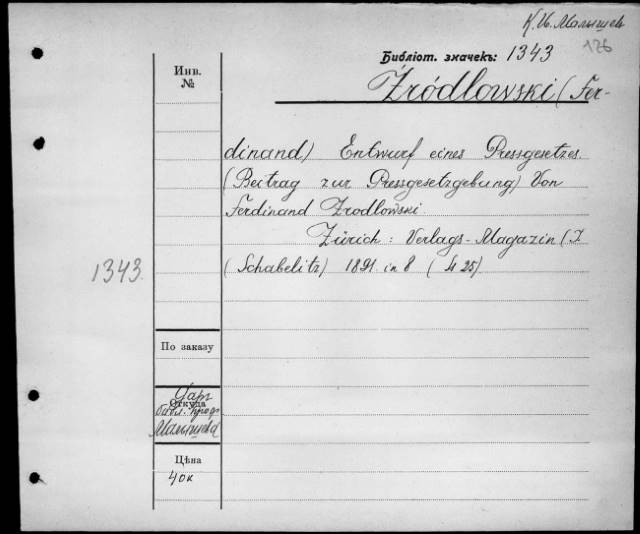 К. И. Малышев
126
Библіот. значекъ: 1343
Инв.
№
Źródlowski (Fer-
dinand) Entwurf eines Pressgesetzes.
(Beitrag zur Pressgesetzgebung) Von
Ferdinand Zrodlowski.
Zürich: Verlags-Magazin (I
1343.
(Schabelitz) 1891. in 8 (425)
По заказу
Откуда
Даръ
библ. проф.
Малышева
Цѣна
40к